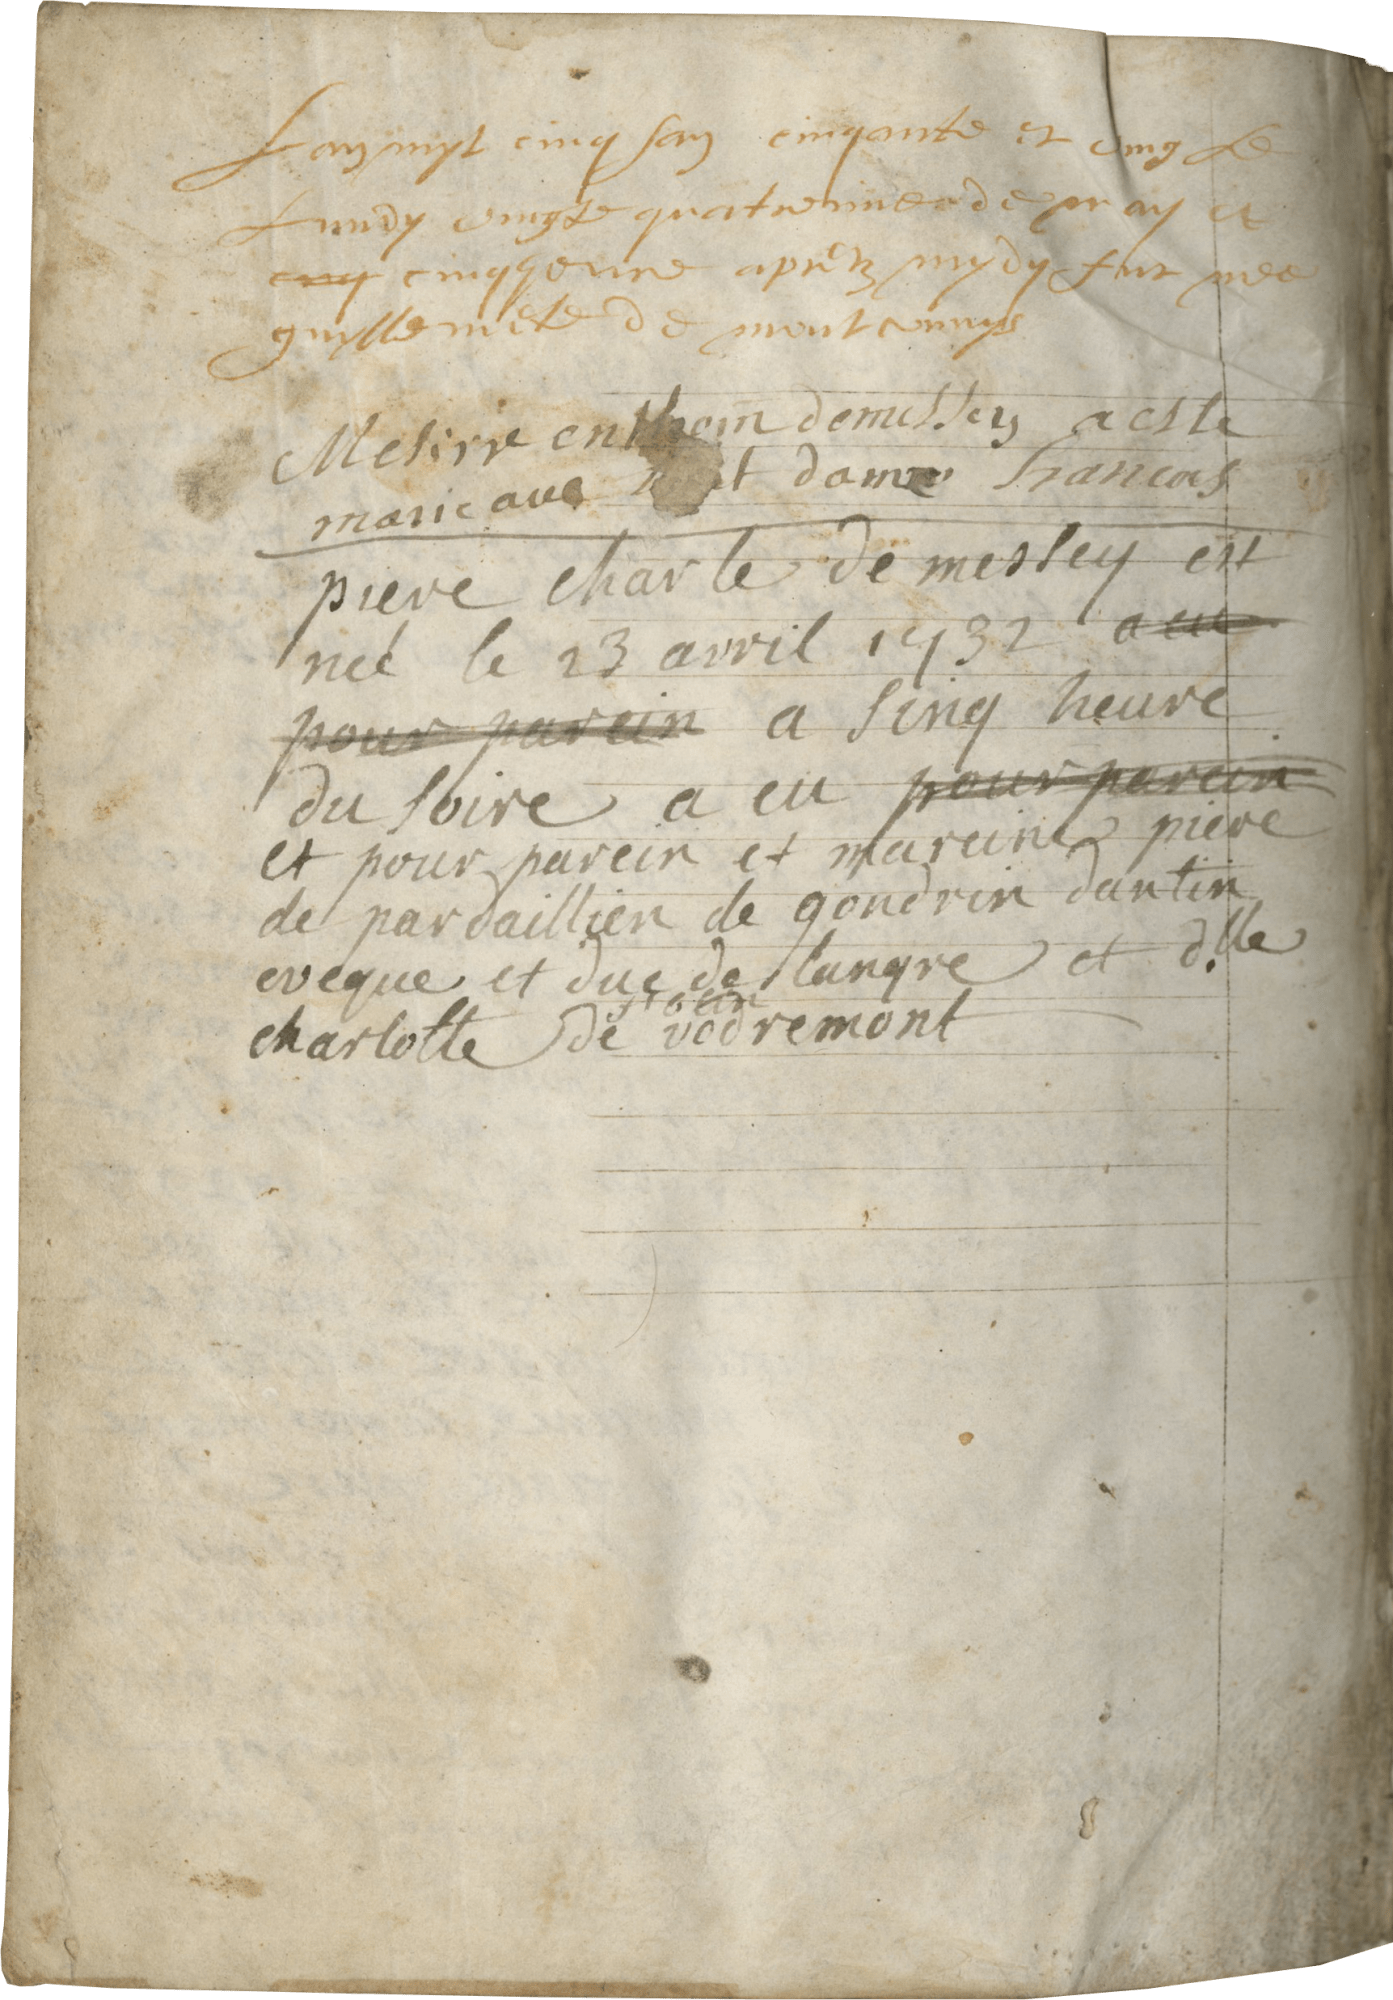 Lan myl cinq san cinqante et cinq Le
Lundy vingte quatriemeo de may et
cinq cinq heure apretz mydy fut nee
guyllemete de montconnys
Mesire enthoin demessey a este
marie avec et dame francois
piere charle de messey est
neé le 23 avril 1732 a eu
pour parein a sinq heure
du soire a eu pour parein
et pour parein et mareine piere
de pardaillien de gondrin dantin
eveque et duc de langre et d.lle
charlotte de vodremont